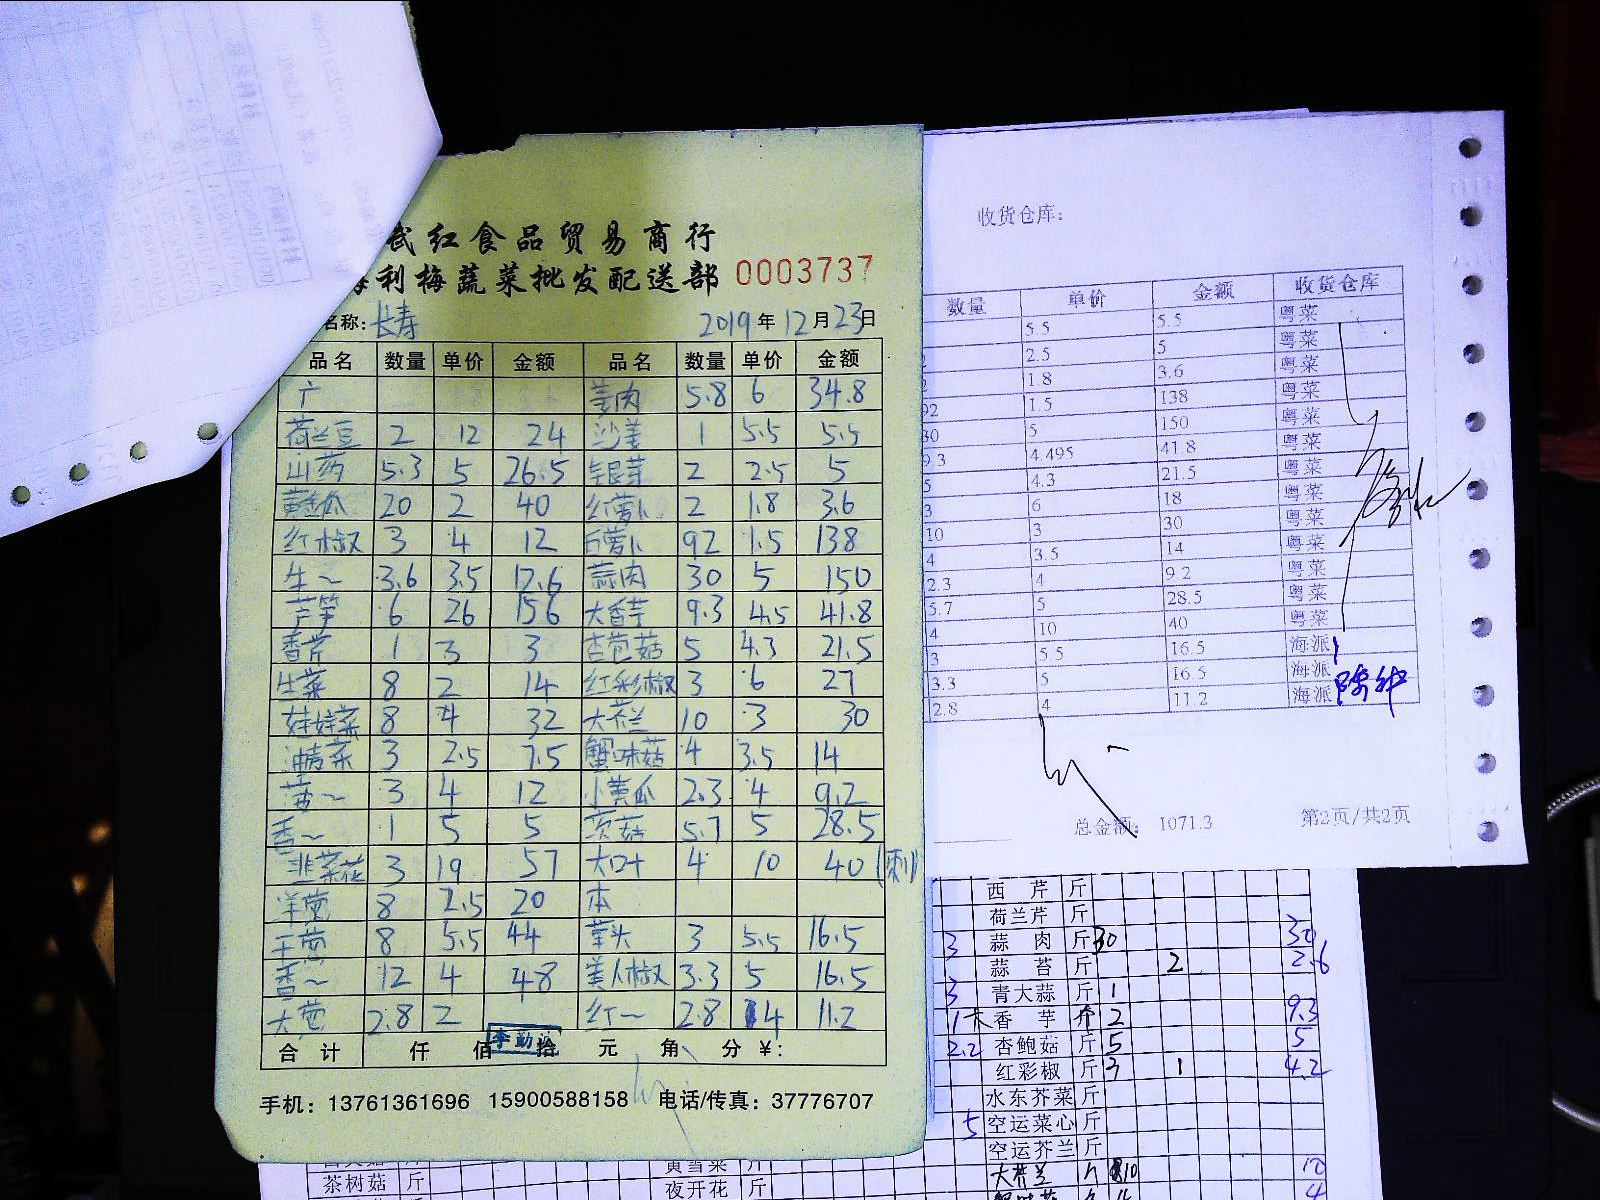 武红食品贸易商行
海利梅蔬菜批发配送部 0003737
名称: 长寿 2019年12月23日
品名 数量 单价 金额 品名 数量 单价 金额
广 姜肉 5.8 6 34.8
荷兰豆 2 12 24 沙姜 1 5.5 5.5
山药 5.3 5 26.5 银芽 2 2.5 5
黄金瓜 20 2 40 红萝卜 2 1.8 3.6
红椒 3 4 12 白萝卜 92 1.5 138
生~ 3.6 3.5 12.6 蒜肉 30 5 150
芦笋 6 26 156 大香芋 9.3 4.5 41.8
香芹 1 3 3 杏苞菇 5 4.3 21.5
生菜 8 2 14 红彩椒 3 6 27
娃娃菜 8 4 32 大芥兰 10 3 30
油青菜 3 2.5 7.5 蟹味菇 4 3.5 14
3 4 12 小黄瓜 2.3 4 9.2
香~ 1 5 5 茨菇 5.7 5 28.5
韭菜花 3 19 57 大叶 4 10 40
洋葱 8 2.5 20 本
干葱 8 5.5 44 3 5.5 16.5
香~ 12 4 48 美人椒 3.3 5 16.5
大葱 2.8 2 红~ 2.8 4 11.2
合计 仟 佰 拾 元 角 分 ¥:
手机: 13761361696 15900588158 电话/传真: 37776707
收货仓库:
数量 单价 金额 收货仓库
5.5 5.5 粤菜
2.5 5 粤菜
1.8 3.6 粤菜
92 1.5 138 粤菜
30 5 150 粤菜
9.3 4.495 41.8 粤菜
5 4.3 21.5 粤菜
3 6 18 粤菜
10 3 30 粤菜
4 3.5 14 粤菜
2.3 4 9.2 粤菜
5.7 5 28.5 粤菜
4 10 40 粤菜
3 5.5 16.5 海派
3.3 5 16.5 海派
2.8 4 11.2 海派
总金额: 1071.3 第2页/共2页
西芹 斤
荷兰芹 斤
3 蒜肉 斤 30 30
蒜苔 斤 2 2.6
3 青大蒜 斤 1
1 大香芋 斤 2 9.3
2.2 杏鲍菇 斤 5 5
红彩椒 斤 3 1 4.2
水东芥菜 斤
5 空运菜心 斤
空运芥兰 斤
大芥兰 10 10
茶树菇 斤 黄雪菜 斤
夜开花 斤